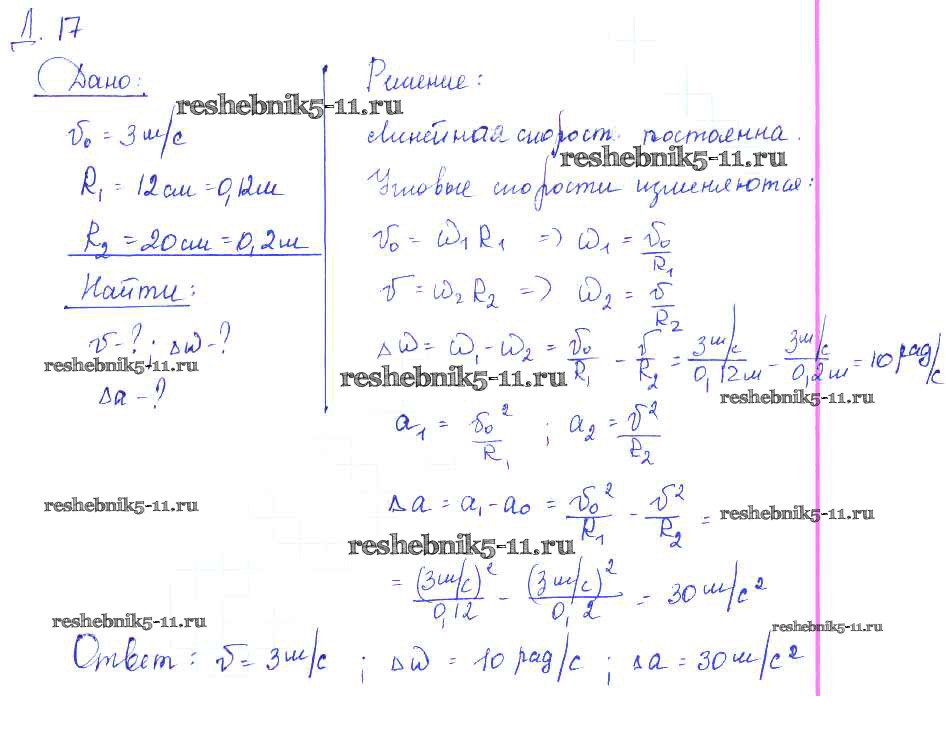 Д. 17
Дано:
v₀ = 3 м/с
R₁ = 12 см = 0,12 м
R₂ = 20 см = 0,2 м
Найти:
v - ? ; Δω - ?
Δa - ?
Решение:
Линейная скорост. постоянна.
Угловые скорости изменяются:
v₀ = ω₁ R₁ => ω₁ = v₀/R₁
v = ω₂ R₂ => ω₂ = v/R₂
Δω = ω₁ - ω₂ = v₀/R₁ - v/R₂ = 3 м/с / 0,12 м - 3 м/с / 0,2 м = 10 рад/с
a₁ = v₀²/R₁ ; a₂ = v²/R₂
Δa = a₁ - a₀ = v₀²/R₁ - v²/R₂ =
= (3 м/с)²/0,12 - (3 м/с)²/0,2 = 30 м/с²
Ответ: v = 3 м/с ; Δω = 10 рад/с ; Δa = 30 м/с²
reshebnik5-11.ru
reshebnik5-11.ru
reshebnik5-11.ru
reshebnik5-11.ru
reshebnik5-11.ru
reshebnik5-11.ru
reshebnik5-11.ru
reshebnik5-11.ru
reshebnik5-11.ru
reshebnik5-11.ru